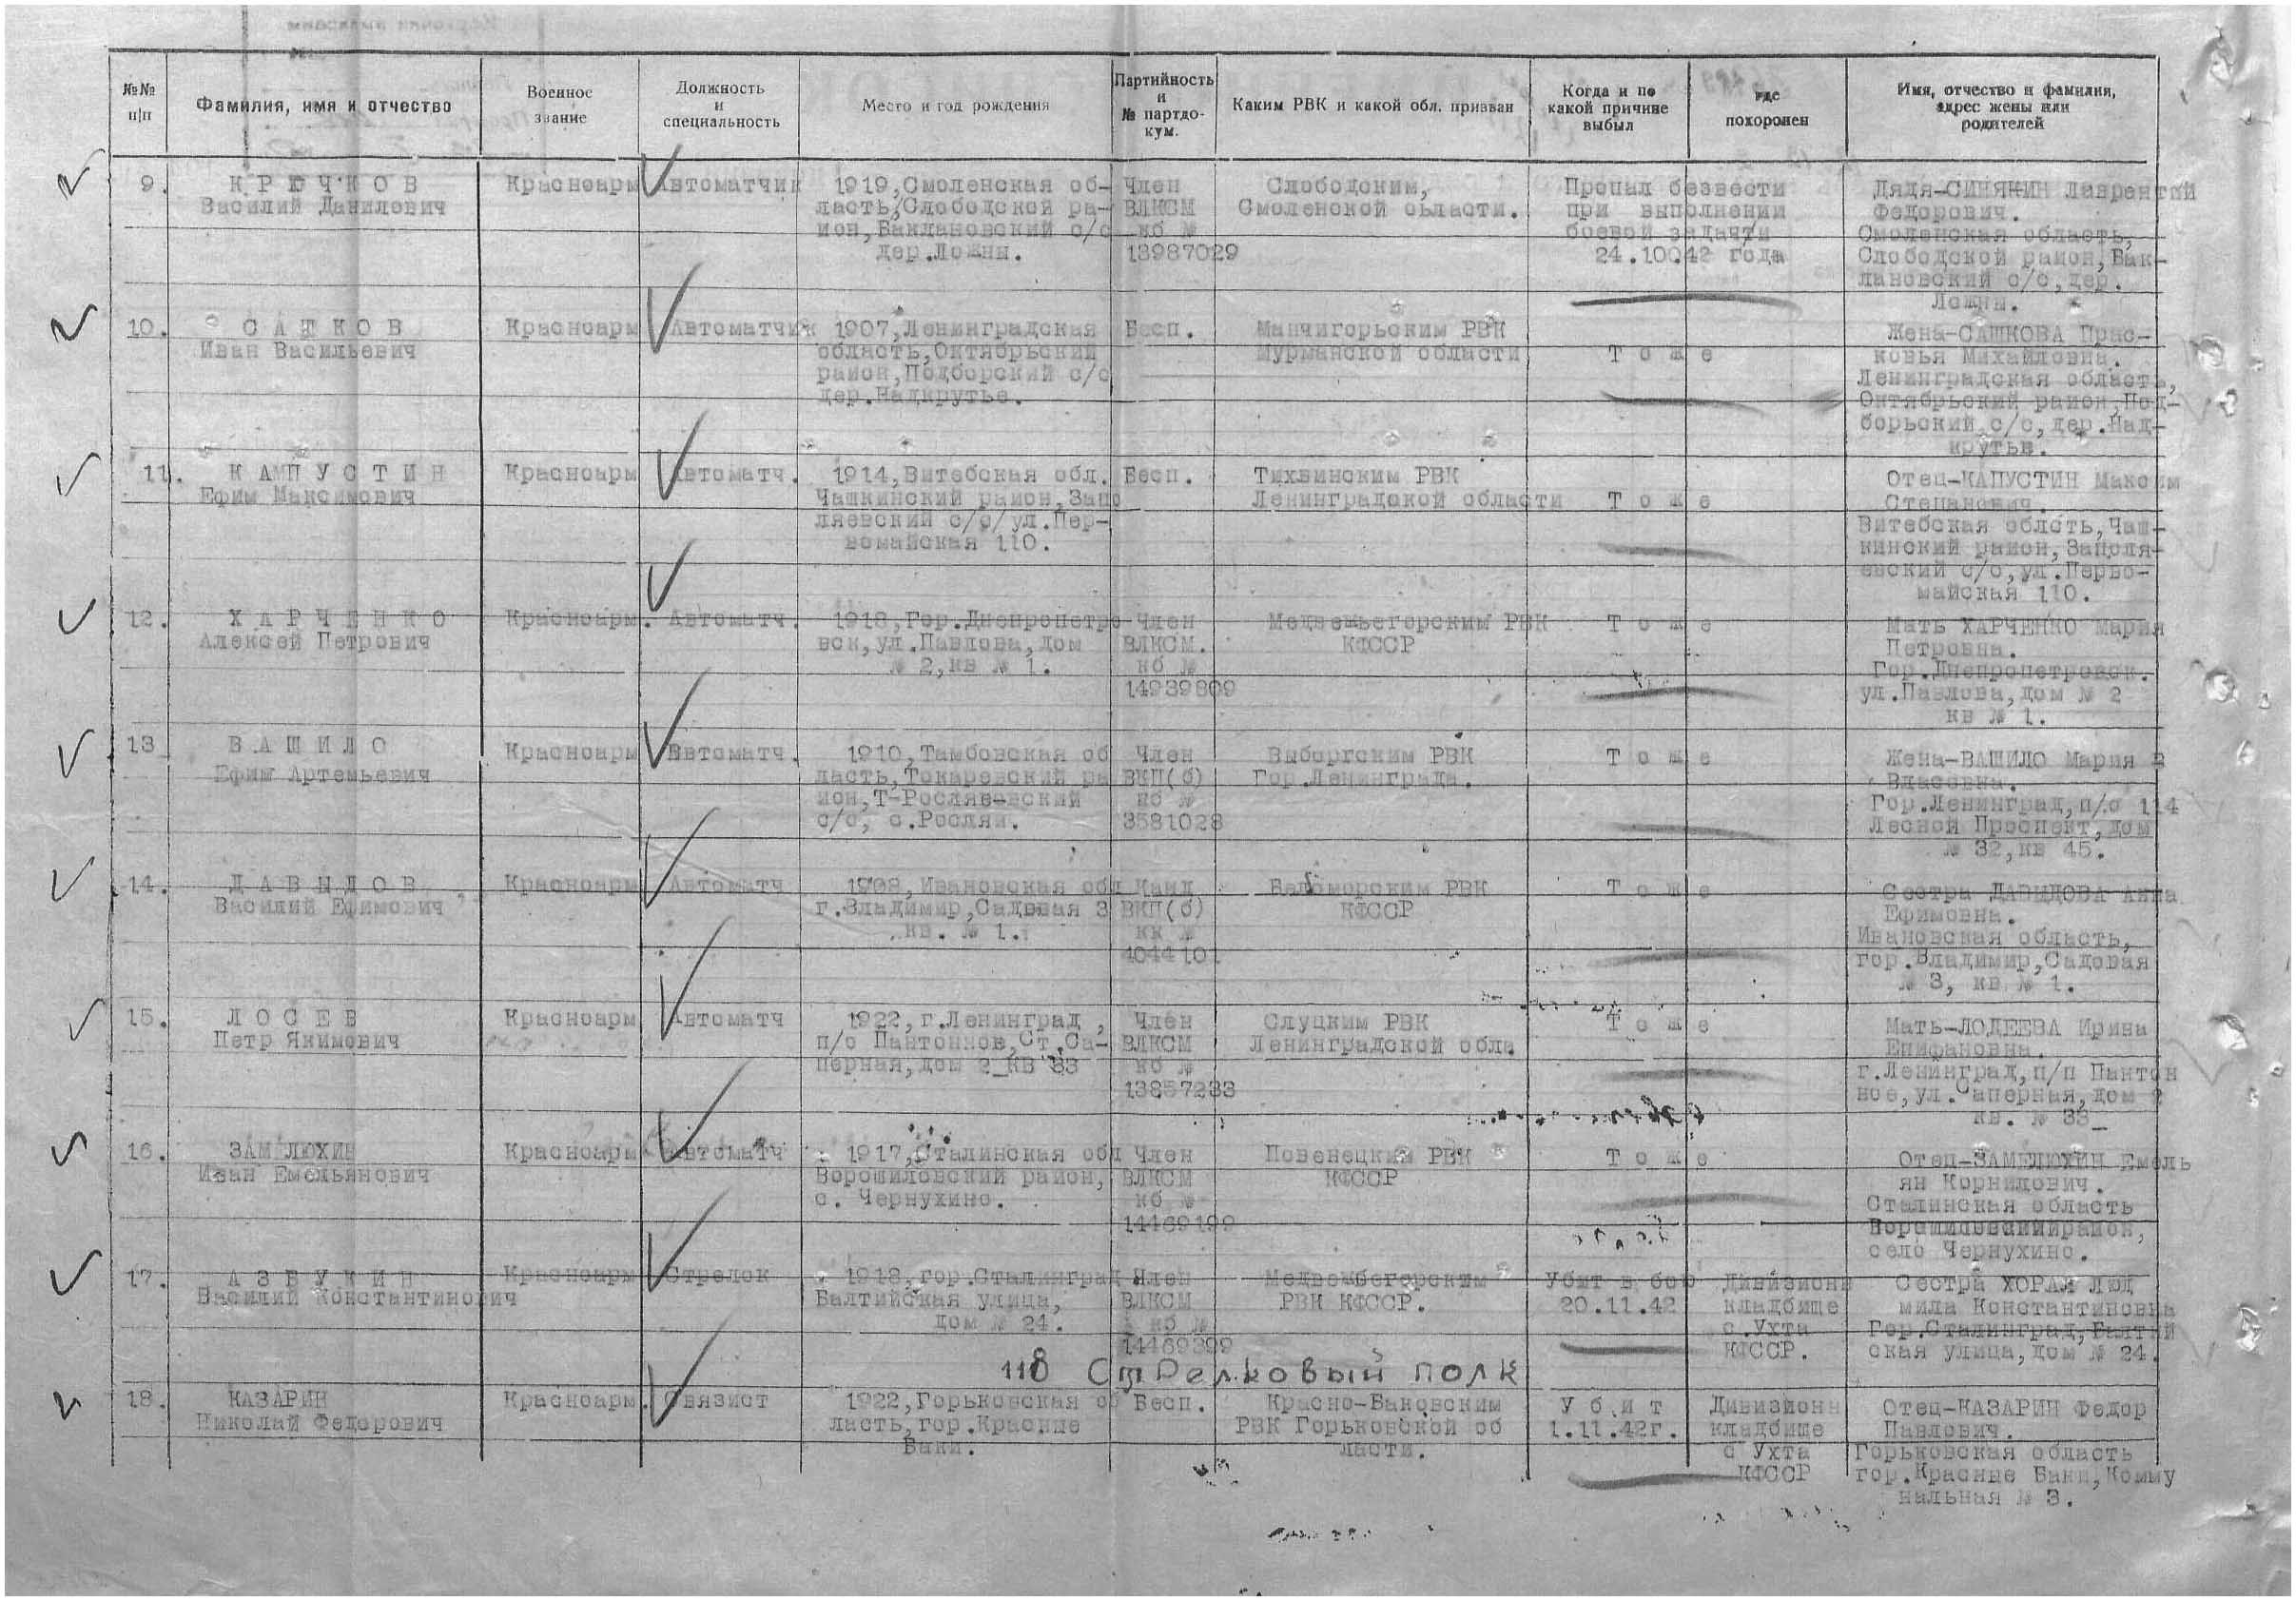 №№ п|п
Фамилия, имя и отчество
Военное звание
Должность и специальность
Место и год рождения
Партийность и № партдо-кум.
Каким РВК и какой обл. призван
Когда и по какой причине выбыл
где похоронен
Имя, отчество и фамилия, адрес жены или родителей
9.
КРЮЧКОВ
Василий Данилович
Красноарм
Автоматчик
1919,Смоленская об-
ласть,Слободской ра-
ион,Баклановский с/с
дер.Ложны.
Член
ВЛКСМ
кб №
13987029
Слободским,
Смоленской области.
Пропал безвести
при выполнении
боевой задачи
24.10.42 года
Дядя-СИНЯКИН Лаврентий
Федорович.
Смоленская область,
Слободской район,Бак-
лановский с/с,дер.
Ложны.
10.
САШКОВ
Иван Васильевич
Красноарм
Автоматчик
1907,Ленинградская
область,Октябрьский
район,Подборский с/с
дер.Надкрутье.
Бесп.
Манчигорьским РВК
Мурманской области
Тоже
Жена-САШКОВА Прас-
ковья Михайловна.
Ленинградская область,
Октябрьский район,Под-
борьский с/с,дер.Над-
крутье.
11.
КАМПУСТИН
Ефим Максимович
Красноарм
Автоматч.
1914,Витебская обл.
Чашкинский район,Запо
ляевский с/с/ул.Пер-
вомайская 110.
Бесп.
Тихвинским РВК
Ленинградской области
Тоже
Отец-КАПУСТИН Максим
Степанович.
Витебская облсть,Чаш-
кинский район,Заполя-
евский с/с,ул.Перво-
майская 110.
12.
ХАРЧЕНКО
Алексей Петрович
Красноарм.
Автоматч.
1918,Гор.Днепропетро
вск,ул.Павлова,дом
№ 2,кв № 1.
Член
ВЛКСМ.
кб №
14939809
Медвежьегорским РВК
КФССР
Тоже
Мать ХАРЧЕНКО Мария
Петровна.
Гор.Днепропетровск.
ул.Павлова,дом № 2
кв № 1.
13
ВАШИЛО
Ефим Артемьевич
Красноарм
Автоматч.
1910,Тамбовская об
ласть,Токаревский ра
ион,Т-Росляевский
с/с, с.Росляи.
Член
ВКП(б)
пб №
3581028
Выборгским РВК
Гор.Ленинграда.
Тоже
Жена-ВАШИЛО Мария В
Власовна.
Гор.Ленинград,п/о 114
Лесной Проспект,дом
№ 32,кв 45.
14.
ДАВЫДОВ
Василий Ефимович
Красноарм
Автоматч
1908,Ивановская обл
г.Владимир,Садовая 3
кв. № 1.
Канд
ВКП(б)
кк №
4044101
Беломорским РВК
КФССР
Тоже
Сестра ДАВЫДОВА Анна
Ефимовна.
Ивановская область,
гор.Владимир,Садовая
№ 3, кв № 1.
15.
ЛОСЕВ
Петр Якимович
Красноарм
Автоматч
1922,г.Ленинград,
п/о Пантоннов,Ст.Са-
перная,дом 2 кв 33
Член
ВЛКСМ
кб №
13857233
Слуцким РВК
Ленинградской обла
Тоже
Мать-ЛОДЕЕВА Ирина
Епифановна.
г.Ленинград,п/п Пантон
ное,ул.Саперная,дом 2
кв. № 33
16.
ЗАМЕЛЮХИН
Иван Емельянович
Красноарм
Автоматч
1917,Сталинская обл
Ворошиловский район,
с. Чернухино.
Член
ВЛКСМ
кб №
14469199
Повенецким РВК
КФССР
Тоже
Отец-ЗАМЕЛЮХИН Емель
ян Корнилович.
Сталинская область
Ворошиловскийрайон,
село Чернухино.
17.
АЗБУКИН
Василий Константинович
Красноарм
Стрелок
1918,гор.Сталинград
Балтийская улица,
дом № 24.
Член
ВЛКСМ
кб №
14469399
Медвежбегорским
РВК КФССР.
Убит в бою
20.11.42
Дивизионн
кладбище
с.Ухта
КФССР.
Сестра ХОРАЛ Люд
мила Константиновна
Гор.Сталинград,Балтий
ская улица,дом № 24.
118 Стрелковый полк
18.
КАЗАРИН
Николай Федорович
Красноарм.
Связист
1922,Горьковская об
ласть,гор.Красные
Баки.
Бесп.
Красно-Баковским
РВК Горьковской об
ласти.
Убит
1.11.42г.
Дивизионн
кладбище
с Ухта
КФССР
Отец-КАЗАРИН Федор
Павлович.
Горьковская область
гор.Красные Баки,Комму
нальная № 3.